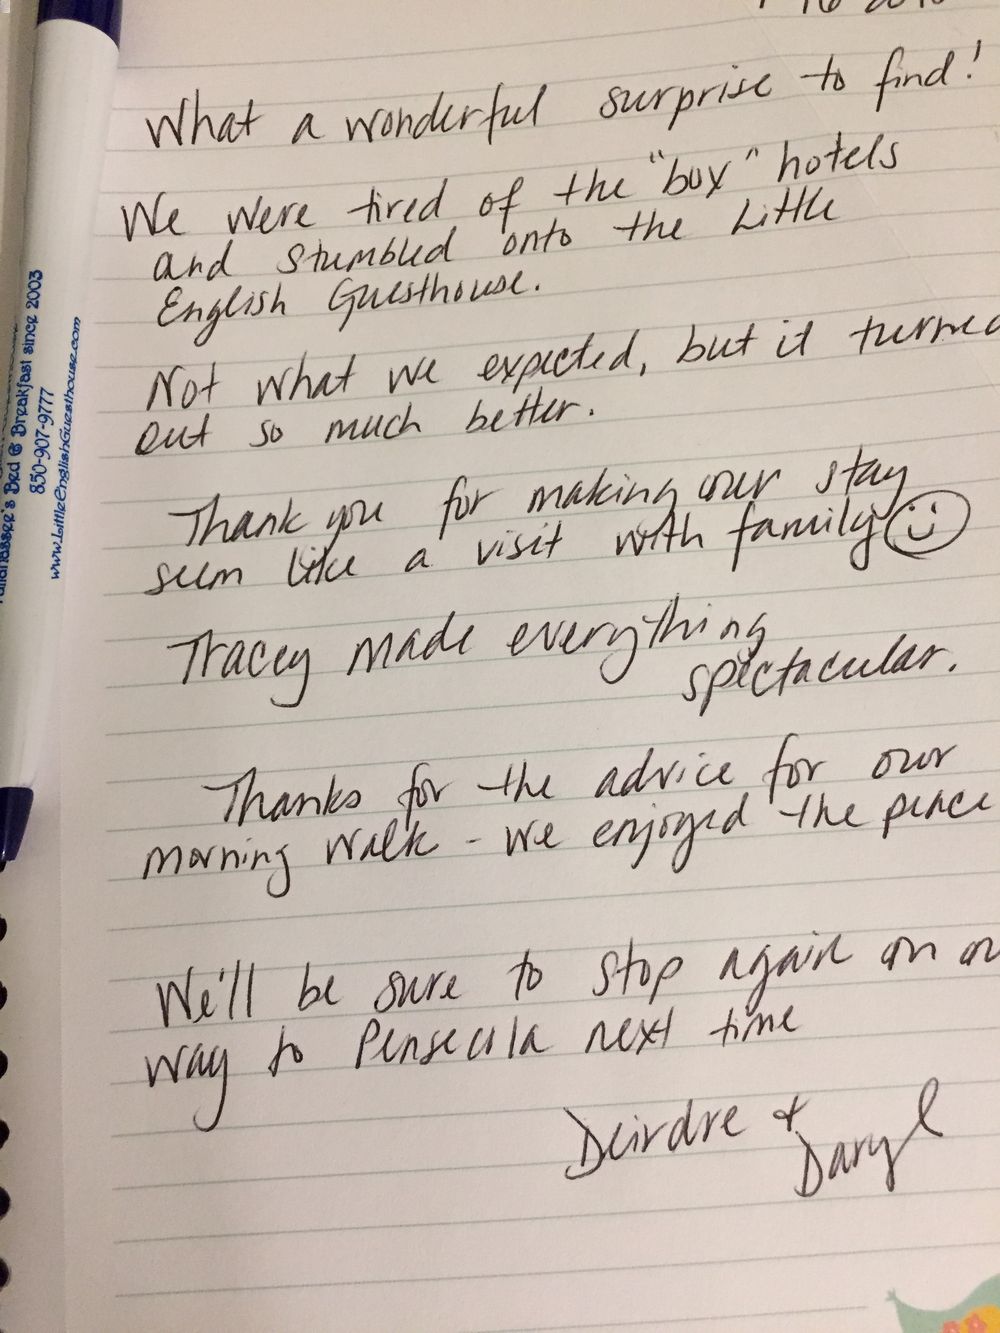 What a wonderful surprise to find!
We were tired of the "box" hotels
and stumbled onto the Little
English Guesthouse.
Not what we expected, but it turned
out so much better.
Thank you for making our stay
seem like a visit with family
Tracey made everything
spectacular.
Thanks for the advice for our
morning walk - we enjoyed the peace
We'll be sure to stop again on
way to Pensecola next time
Deirdre &
Daryl
Tallahassee's Bed & Breakfast since 2003
850-907-9777
www.LittleEnglishGuesthouse.com